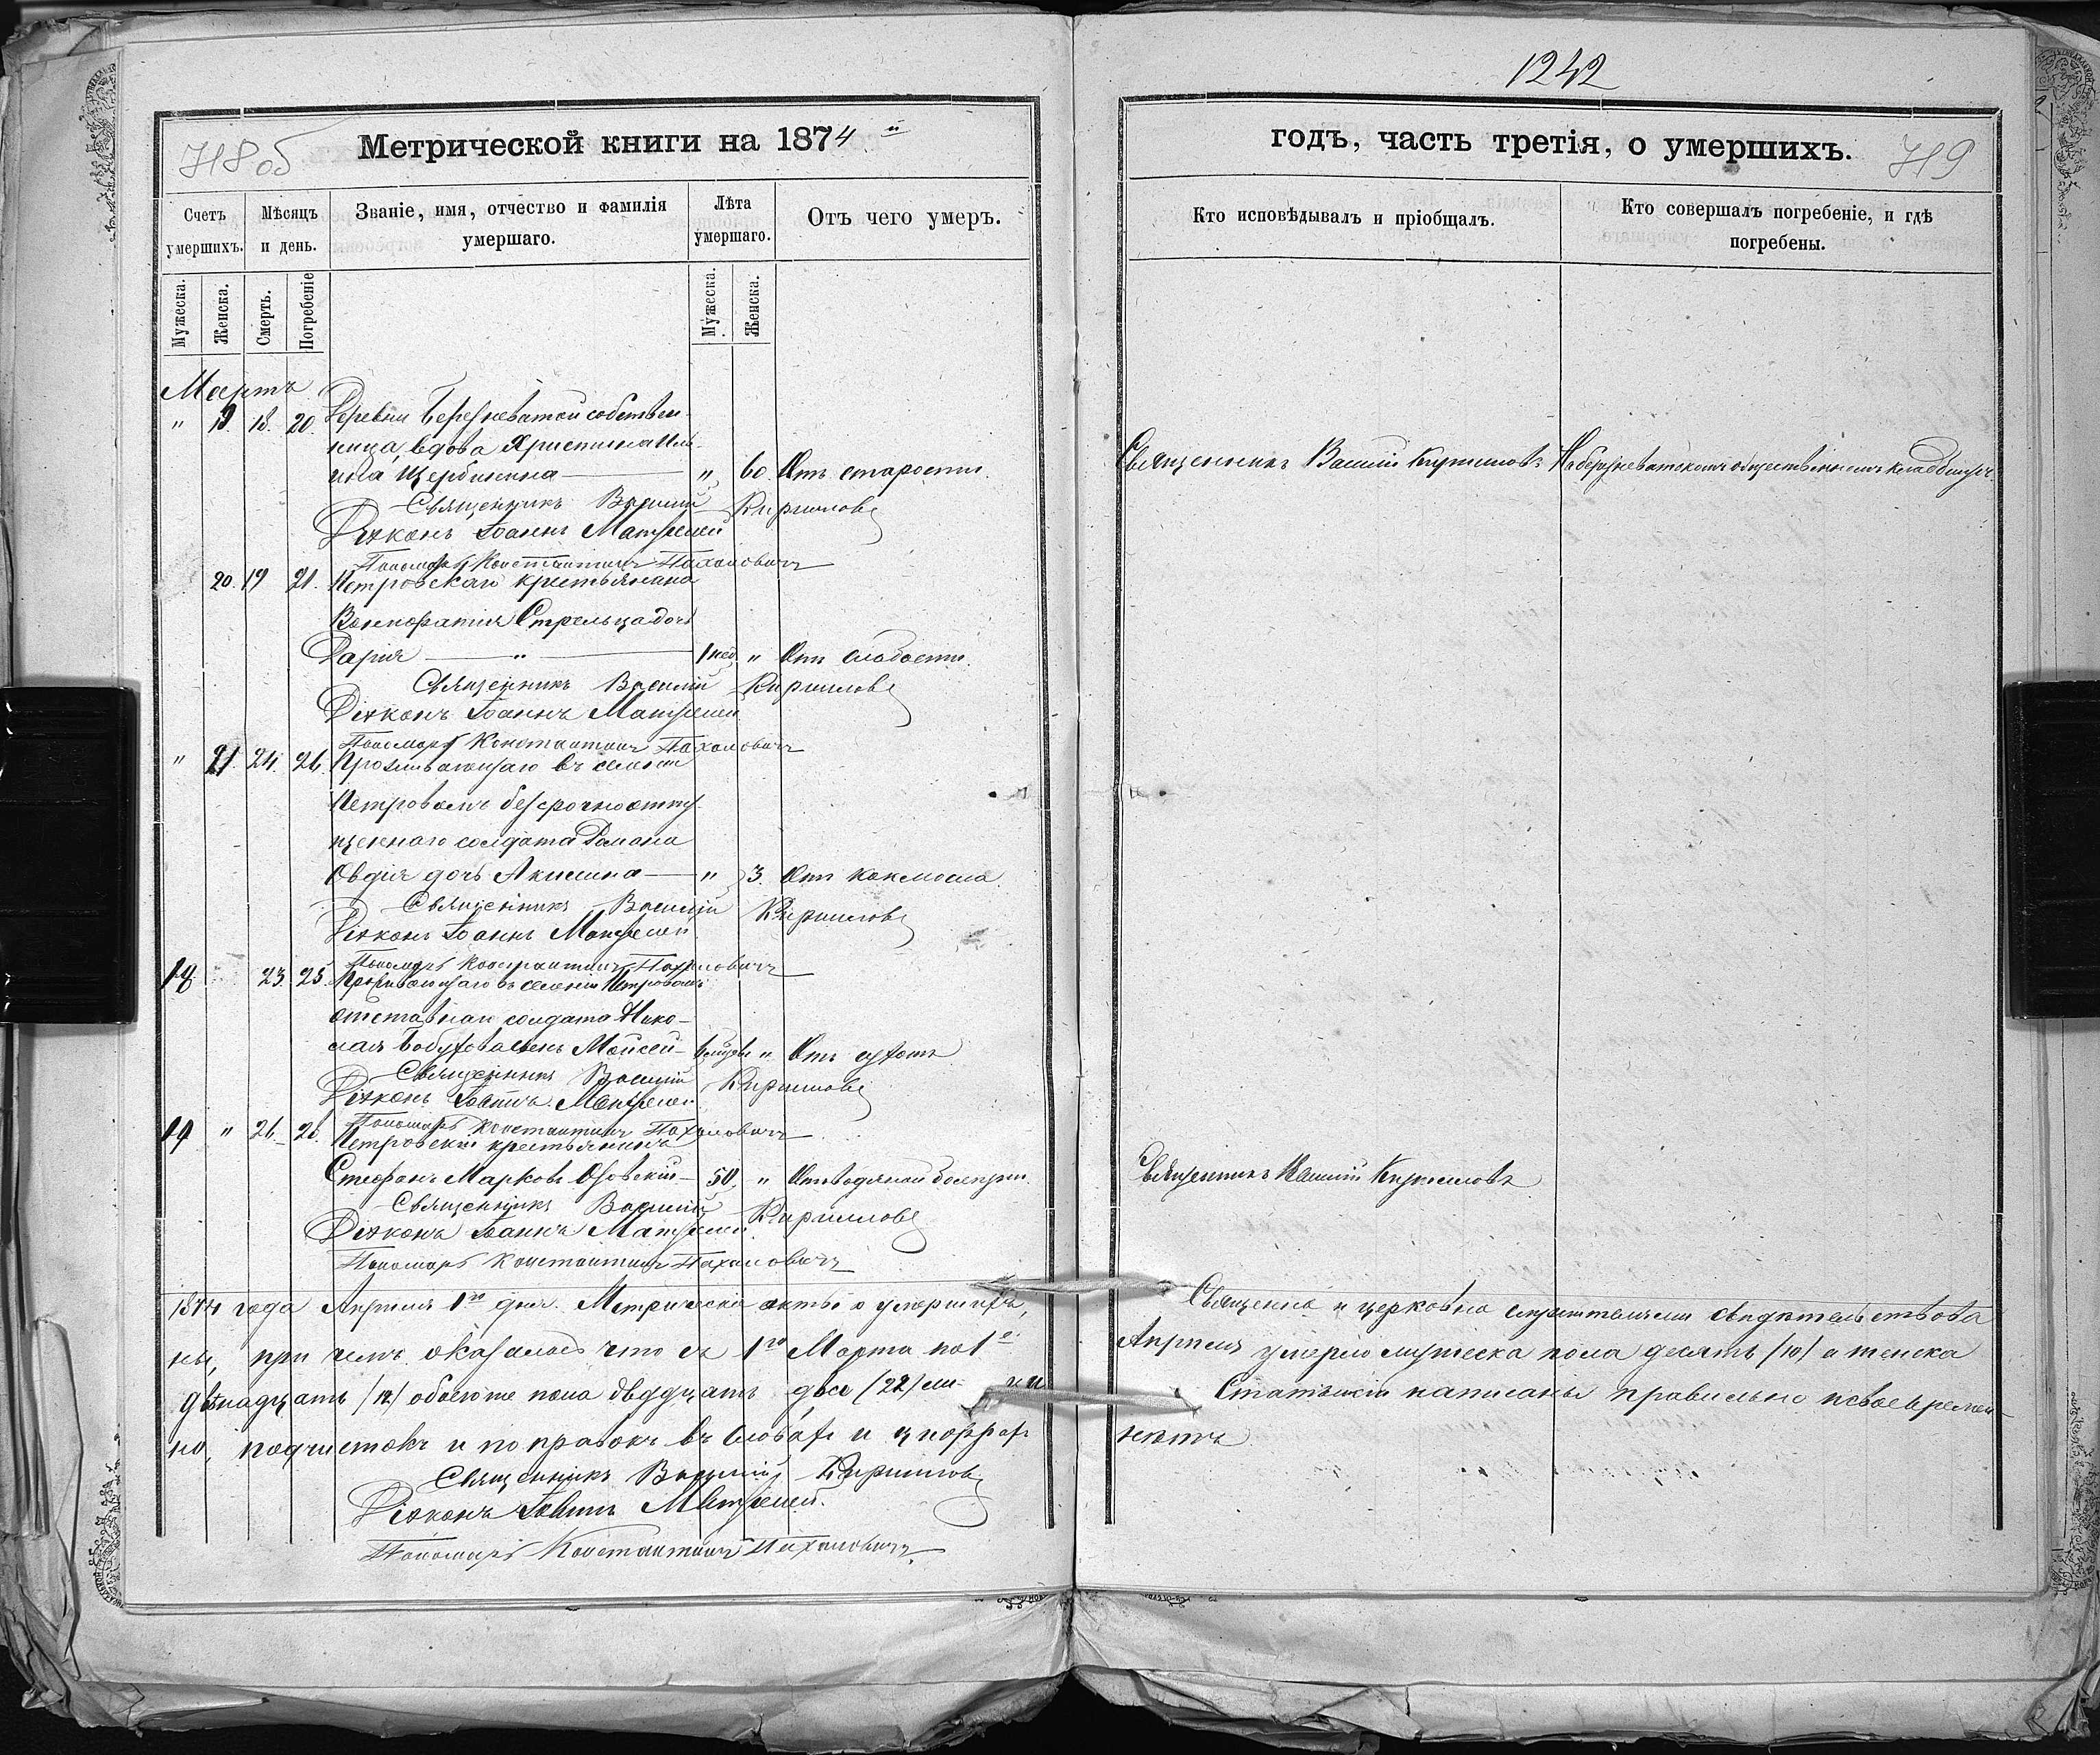 1242
718 об
Метрической книги на 1874 й
годъ, часть третія, о умершихъ.
719
Счетъ умершихъ.
Мѣсяцъ и день.
Званіе, имя, отчество и фамилія умершаго.
Лѣта умершаго.
Отъ чего умеръ.
Кто исповѣдывалъ и пріобщалъ.
Кто совершалъ погребеніе, и гдѣ погребены.
Мужеска.
Женска.
Смерть.
Погребеніе
Мужеска.
Женска.
Мартъ
" 19. 18. 20. Деревни Березневатой собствен-
ница, вдова Христина
Щербинина " 60. Отъ старости.
Священникъ Василій Кирилловъ
На Березневатскомъ общественномъ кладбищѣ.
Священникъ Василій Кирилловъ
Діаконъ Іоаннъ
Пономарь Константинъ Пахаловичъ
20. 19 21. Петровскаго крестьянина
Стрельца дочь
Дарія " 1 нед. " Отъ слабости.
Священникъ Василій Кирилловъ
Діаконъ Іоаннъ
Пономарь Константинъ Пахаловичъ
" 21. 24. 26. Проживающаго въ селеніи
Петровомъ безсрочноотпу-
щеннаго солдата Романа
дочь Акилина " 3. Отъ
Священникъ Василій Кирилловъ
Діаконъ Іоаннъ
Пономарь Константинъ Пахаловичъ
18 23. 25. Проживающаго въ селеніи Петровомъ
отставнаго солдата Нико-
лая сынъ Моисей "
Священникъ Василій Кирилловъ
Діаконъ Іоаннъ
Пономарь Константинъ Пахаловичъ
19 " 26. 28. Петровскій крестьянинъ
Стефанъ Марковъ Озовскій 50. " Отъ водяной болезни.
Священникъ Василій Кирилловъ
Священникъ Василій Кирилловъ
Діаконъ Іоаннъ
Пономарь Константинъ Пахаловичъ
1874 года Апреля 1го дня. Метрическіе акты о умершихъ, Священно и церковно служителями свидетельствова
ны, при чемъ оказалось что съ 1го Марта по 1е Апреля умерло мужеска пола десять (10) а женска
двѣнадцать (12) обоего же пола двадцать два (22) Статьи написаны правильно и своевремен-
но, подчистокъ и поправокъ въ словахъ и цифрахъ нѣтъ
Священникъ Василій Кирилловъ
Діаконъ Іоаннъ
Пономарь Константинъ Пахаловичъ